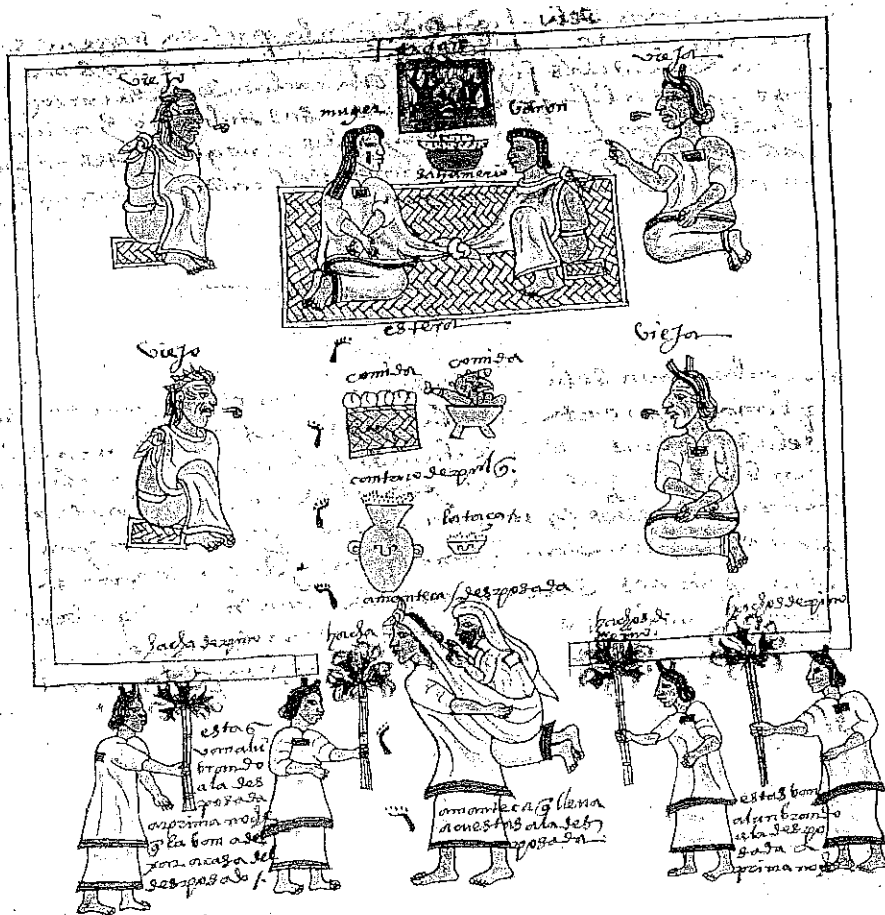 fogar
viejo
muger
baron
vieja
sahumerio
estera
viejo
vieja
comida
comida
cantaro de pulq
la taça
amanteca / desposada
hacha de pino
hacha
hachos de pino
hachos de pino
estas
van alū
brando
a la des
posada
a prima noche
q la ban a de
xar a casa del
desposado /
amanteca q lleva
a cuestas a la des
posada
estas ban
alunbrando
a la despo
sada a
prima noche